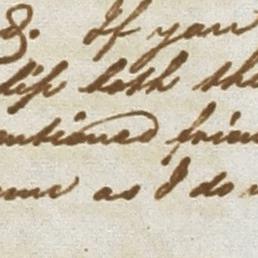 8. If your
lip both the
entioned frien
me as I do